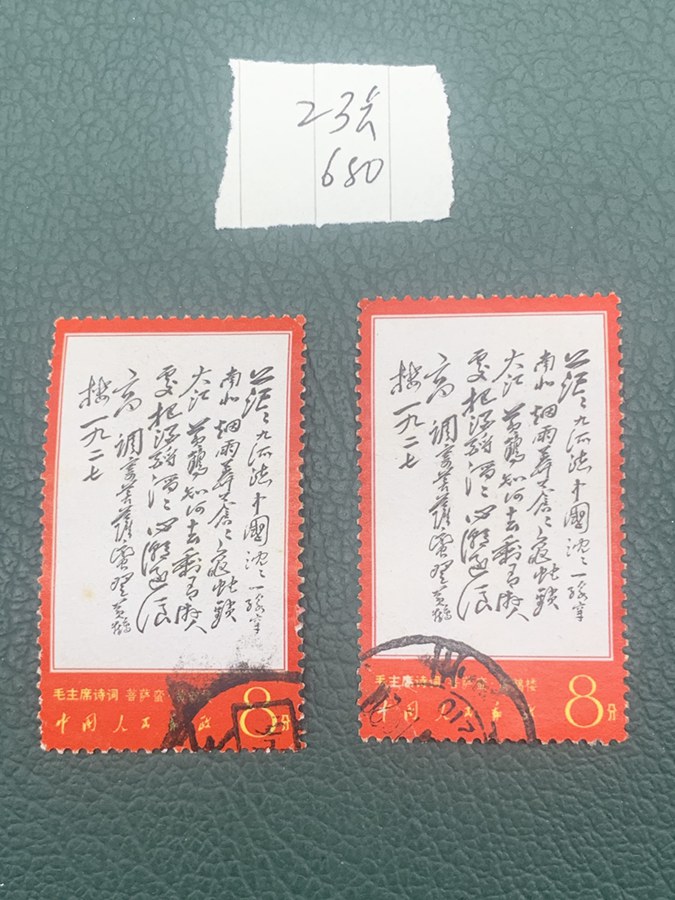 23
680
茫〻九派流中國 沈〻一线穿
南北 烟雨莽苍〻 龟蛇锁
大江 黄鹤知何去 剩有游人
处 把酒酹滔〻 心潮逐浪
高 调寄菩萨蛮 登黄鹤
楼 一九二七
毛主席诗词 菩萨蛮
中国人民邮政
8分
茫〻九派流中國 沈〻一线穿
南北 烟雨莽苍〻 龟蛇锁
大江 黄鹤知何去 剩有游人
处 把酒酹滔〻 心潮逐浪
高 调寄菩萨蛮 登黄鹤
楼 一九二七
毛主席诗词 菩萨蛮 黄鹤楼
中国人民邮政
8分